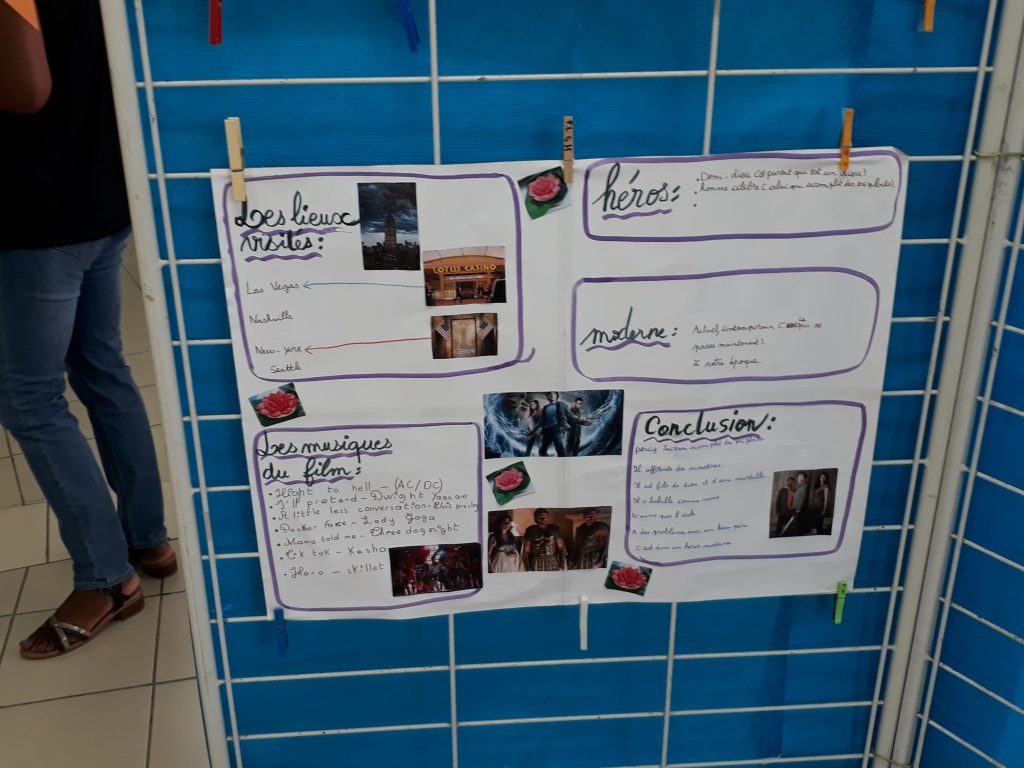 Les lieux
visités:
LOTUS CASINO
Las Vegas
Nashville
New-york
Seattle
héros:
. Demi-dieu (
homme célèbre (celui qui accomplit des exploits)
moderne:
Actuel, contemporain (
passe maintenant)
à notre époque..
Les musiques
du film:
to hell - (AC/DC)
. I'll pretend - Dwight Yoacam
. A little less conversation - Elvis presley
. Pocker face - Lady Gaga
. Mama told me - Three dog night
. Tik tok - Kesha
. Hero - skillet
Conclusion:
percy Jackson accomplit des exploits
Il affronte des monstres
Il est fils de dieu et d'une mortelle
Il s'habille comme nous
N'aime pas l'école
A des problèmes avec son beau père
C'est donc un héros moderne